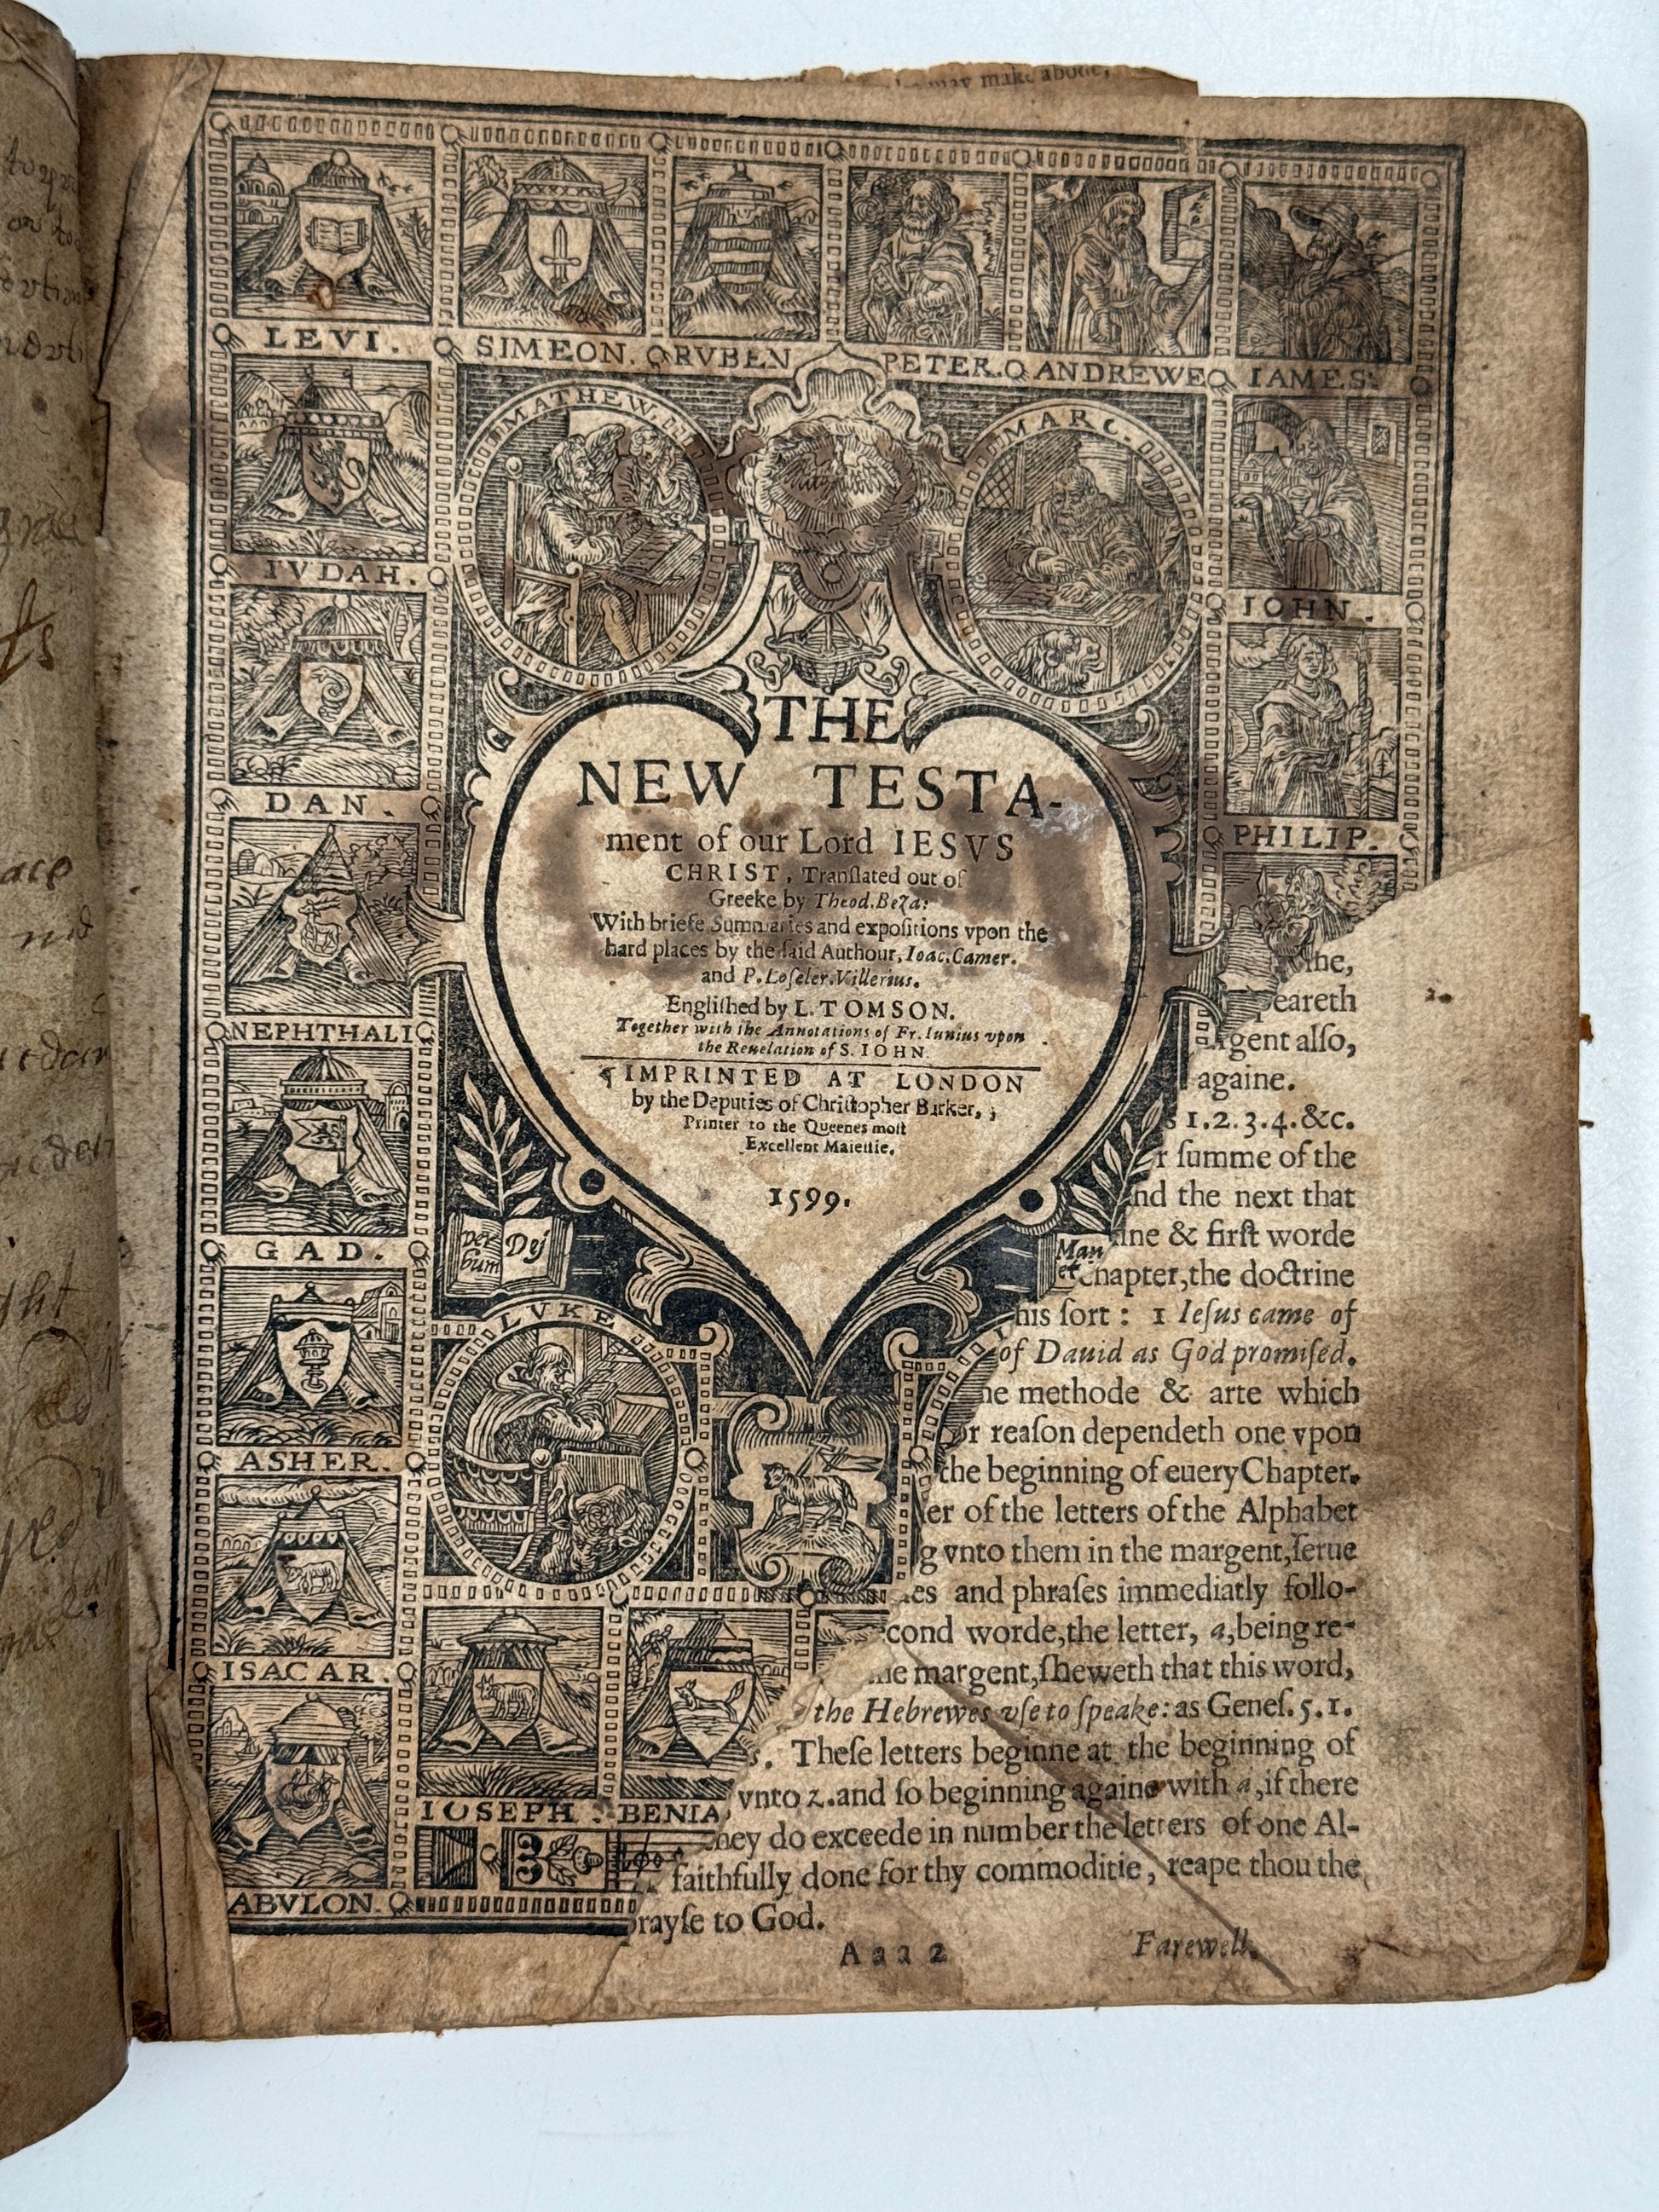 may make abode,
LEVI.
SIMEON.
RVBEN
PETER.
ANDREWE
IAMES.
MATHEW.
MARC.
IVDAH.
IOHN.
DAN.
PHILIP.
NEPHTHALI
GAD.
ASHER.
ISACAR.
ABVLON.
THE
NEW TESTA-
ment of our Lord IESVS
CHRIST, Tranſlated out of
Greeke by Theod.Beza:
With briefe Summaries and expoſitions vpon the
hard places by the ſaid Authour, Ioac.Camer.
and P.Loſeler.Villerius.
Engliſhed by L. TOMSON.
Together with the Annotations of Fr. Iunius vpon
the Reuelation of S. IOHN.
¶ IMPRINTED AT LONDON
by the Deputies of Chriſtopher Barker,
Printer to the Queenes moſt
Excellent Maieſtie.
1599.
ver Dej
bum
Man
et
LVKE
IOSEPH.
BENIA
he,
peareth
rgent alſo,
againe.
s 1.2.3.4.&c.
r ſumme of the
nd the next that
ine & firſt worde
chapter,the doctrine
his ſort : 1 Ieſus came of
of Dauid as God promiſed.
he methode & arte which
or reaſon dependeth one vpon
the beginning of euery Chapter.
er of the letters of the Alphabet
g vnto them in the margent,ſerue
es and phraſes immediatly follo-
cond worde,the letter, a,being re-
he margent,ſheweth that this word,
the Hebrewes vſe to ſpeake: as Geneſ. 5. 1.
s. Theſe letters beginne at the beginning of
vnto z.and ſo beginning againe with a,if there
hey do exceede in number the letters of one Al-
faithfully done for thy commoditie, reape thou the
prayſe to God.
Aaa 2 Farewell.